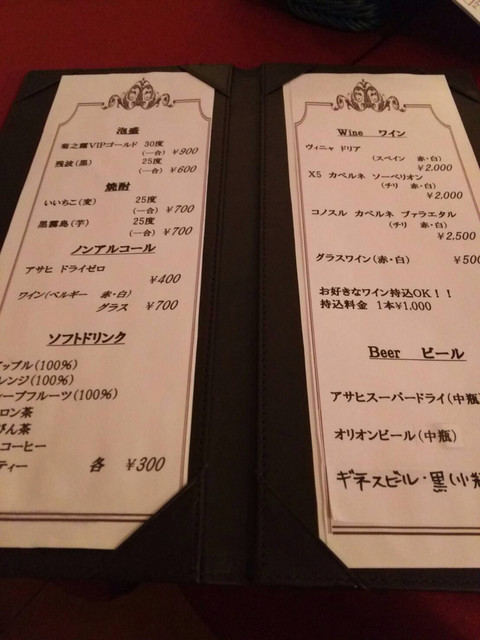 泡盛
菊之露VIPゴールド 30度
(一合) ¥900
残波(黒) 25度
(一合) ¥600
焼酎
いいちこ(麦) 25度
(一合) ¥700
黒霧島(芋) 25度
(一合) ¥700
ノンアルコール
アサヒ ドライゼロ
¥400
ワイン(ベルギー 赤・白)
グラス ¥700
ソフトドリンク
アップル(100%)
レンジ(100%)
ープフルーツ(100%)
ロン茶
ぴん茶
コーヒー
ティー 各 ¥300
Wine ワイン
ヴィニャ ドリア
(スペイン 赤・白)
¥2.000
X5 カベルネ ソーベリオン
(チリ 赤・白)
¥2.000
コノスル カベルネ ヴァラエタル
(チリ 赤・白)
¥2.500
グラスワイン(赤・白) ¥500
お好きなワイン持込OK!!
持込料金 1本¥1,000
Beer ビール
アサヒスーパードライ(中瓶)
オリオンビール(中瓶)
ギネスビル・黒(小瓶